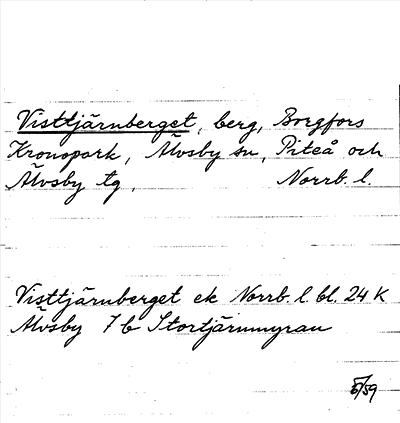 Visttjärnberget, berg, Borgfors
Kronopark, Älvsby sn, Piteå och
Älvsby tg, Norrb. l.
Visttjärnberget ek Norrb. l. bl. 24 K
Älvsby 7 b Stortjärnmyran
5/59